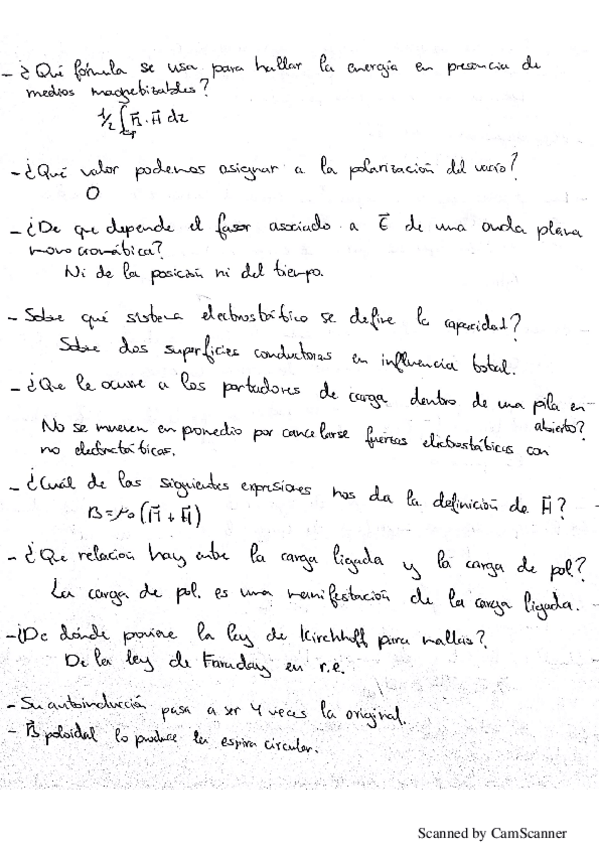 - ¿Qué fórmula se usa para hallar la energía en presencia de
medios magnetizables?
1/2 ∫ B⃗ · H⃗ dz
- ¿Qué valor podemos asignar a la polarización del vacío?
0
- ¿De que depende el fasor asociado a E⃗ de una onda plana
monocromática?
Ni de la posición ni del tiempo.
- Sobre qué sistema electrostático se define la capacidad?
Sobre dos superficies conductoras en influencia total.
- ¿Que le ocurre a los portadores de carga dentro de una pila en
abierto?
No se mueven en promedio por cancelarse fuerzas electrostáticas con
no electrostáticas.
- ¿Cuál de las siguientes expresiones nos da la definición de H⃗?
B = μ0 (M⃗ + H⃗)
- ¿Que relación hay entre la carga ligada y la carga de pol?
La carga de pol. es una manifestación de la carga ligada.
- ¿De dónde proviene la ley de Kirchhoff para mallas?
De la ley de Faraday en r.e.
- Su autoinducción pasa a ser 4 veces la original.
- B⃗ poloidal lo produce la espira circular.
Scanned by CamScanner